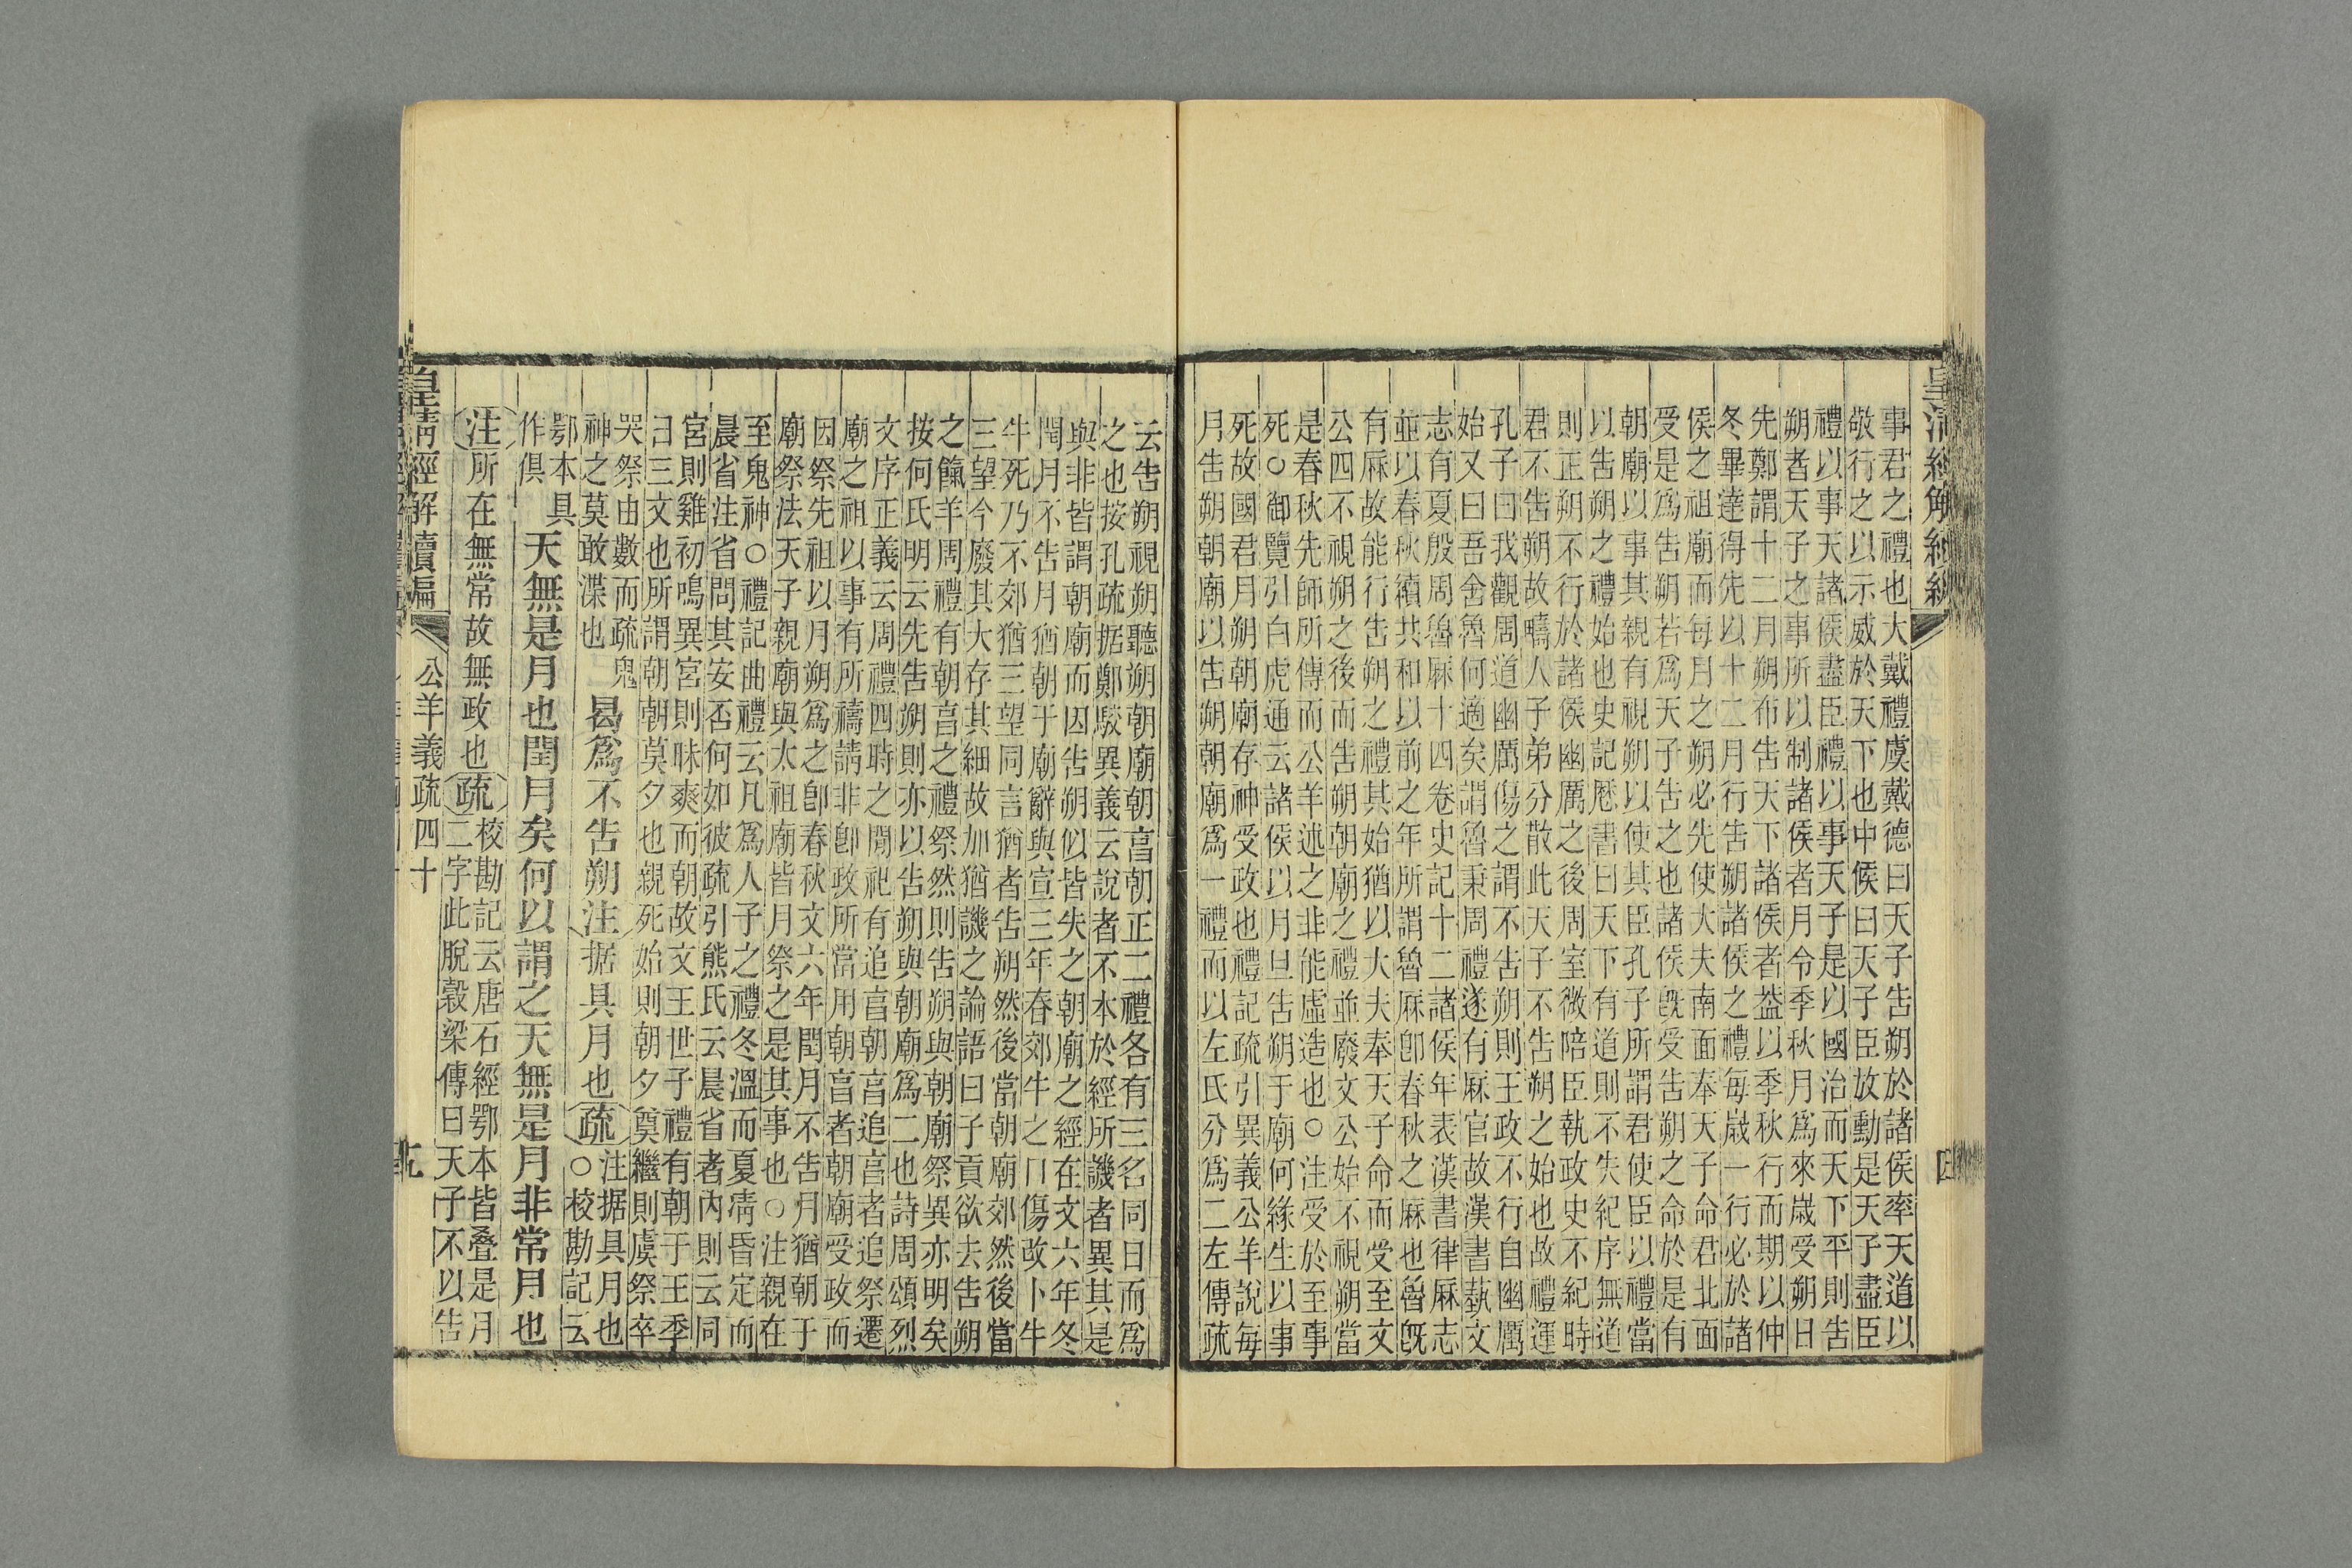 事君之禮也大戴禮虞戴德曰天子告朔於諸侯率天道以
敬行之以示威於天下也中候曰天子臣放勳是天子盡臣
禮以事天諸侯盡臣禮以事天子是以國治而天下平則告
朔者天子之事所以制諸侯者月令季秋月爲來歲受朔日
先鄭謂十二月朔布告天下諸侯者葢以季秋行而期以仲
冬畢達得先以十二月行告朔諸侯之禮每歲一行必於諸
侯之祖廟而每月之朔必先使大夫南面奉天子命君北面
受是爲告朔若爲天子告之也諸侯旣受告朔之命於是有
朝廟以事其親有視朔以使其臣孔子所謂君使臣以禮當
以告朔之禮始也史記厤書曰天下有道則不失紀序無道
則正朔不行於諸侯幽厲之後周室微陪臣執政史不紀時
君不告朔故疇人子弟分散此天子不告朔之始也故禮運
孔子曰我觀周道幽厲傷之謂不告朔則王政不行自幽厲
始又曰吾舍魯何適矣謂魯秉周禮遂有厤官故漢書藝文
志有夏殷周魯厤十四卷史記十二諸侯年表漢書律厤志
並以春秋續共和以前之年所謂魯厤卽春秋之厤也魯旣
有厤故能行告朔之禮其始猶以大夫奉天子命而受至文
公四不視朔之後而告朔朝廟之禮並廢文公始不視朔當
是春秋先師所傳而公羊述之非能虛造也○注受於至事
死○御覽引白虎通云諸侯以月旦告朔于廟何緣生以事
死故國君月朔朝廟存神受政也禮記疏引異義公羊說每
月告朔朝廟以告朔朝廟爲一禮而以左氏分爲二左傳疏
云告朔視朔聽朔朝廟朝亯朝正二禮各有三名同日而爲
之也按孔疏据鄭駮異義云說者不本於經所譏者異其是
與非皆謂朝廟而因告朔似皆失之朝廟之經在文六年冬
閏月不告月猶朝于廟辭與宣三年春郊牛之口傷改卜牛
牛死乃不郊猶三望同言猶者告朔然後當朝廟郊然後當
三望今廢其大存其細故加猶譏之論語曰子貢欲去告朔
之餼羊周禮有朝亯之禮祭然則告朔與朝廟祭異亦明矣
按何氏明云先告朔則亦以告朔與朝廟爲二也詩周頌烈
文序正義云周禮四時之閒祀有追亯朝亯追亯者追祭遷
廟之祖以事有所禱請非卽政所當用朝亯者朝廟受政而
因祭先祖以月朔爲之卽春秋文六年閏月不告月猶朝于
廟祭法天子親廟與太祖廟皆月祭之是其事也○注親在
至鬼神○禮記曲禮云凡爲人子之禮冬溫而夏凊昏定而
晨省注省問其安否何如彼疏引熊氏云晨省者內則云同
宮則雞初鳴異宮則昧爽而朝故文王世子禮有朝于王季
日三文也所謂朝朝莫夕也親死始則朝夕奠繼則虞祭卒
哭祭由數而疏鬼
神之莫敢渫也
曷爲不告朔注据具月也疏
注据具月也
○校勘記云
鄂本具
作俱
天無是月也閏月矣何以謂之天無是月非常月也
注所在無常故無政也疏
校勘記云唐石經鄂本皆疊是月
二字此脫穀梁傳曰天子不以告
皇清經解續編
公羊義疏四十